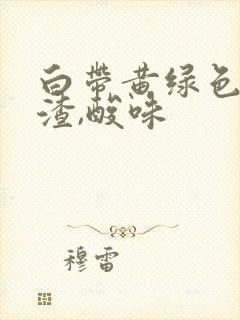 白帶黄绿色
渣,酸味
穆雷